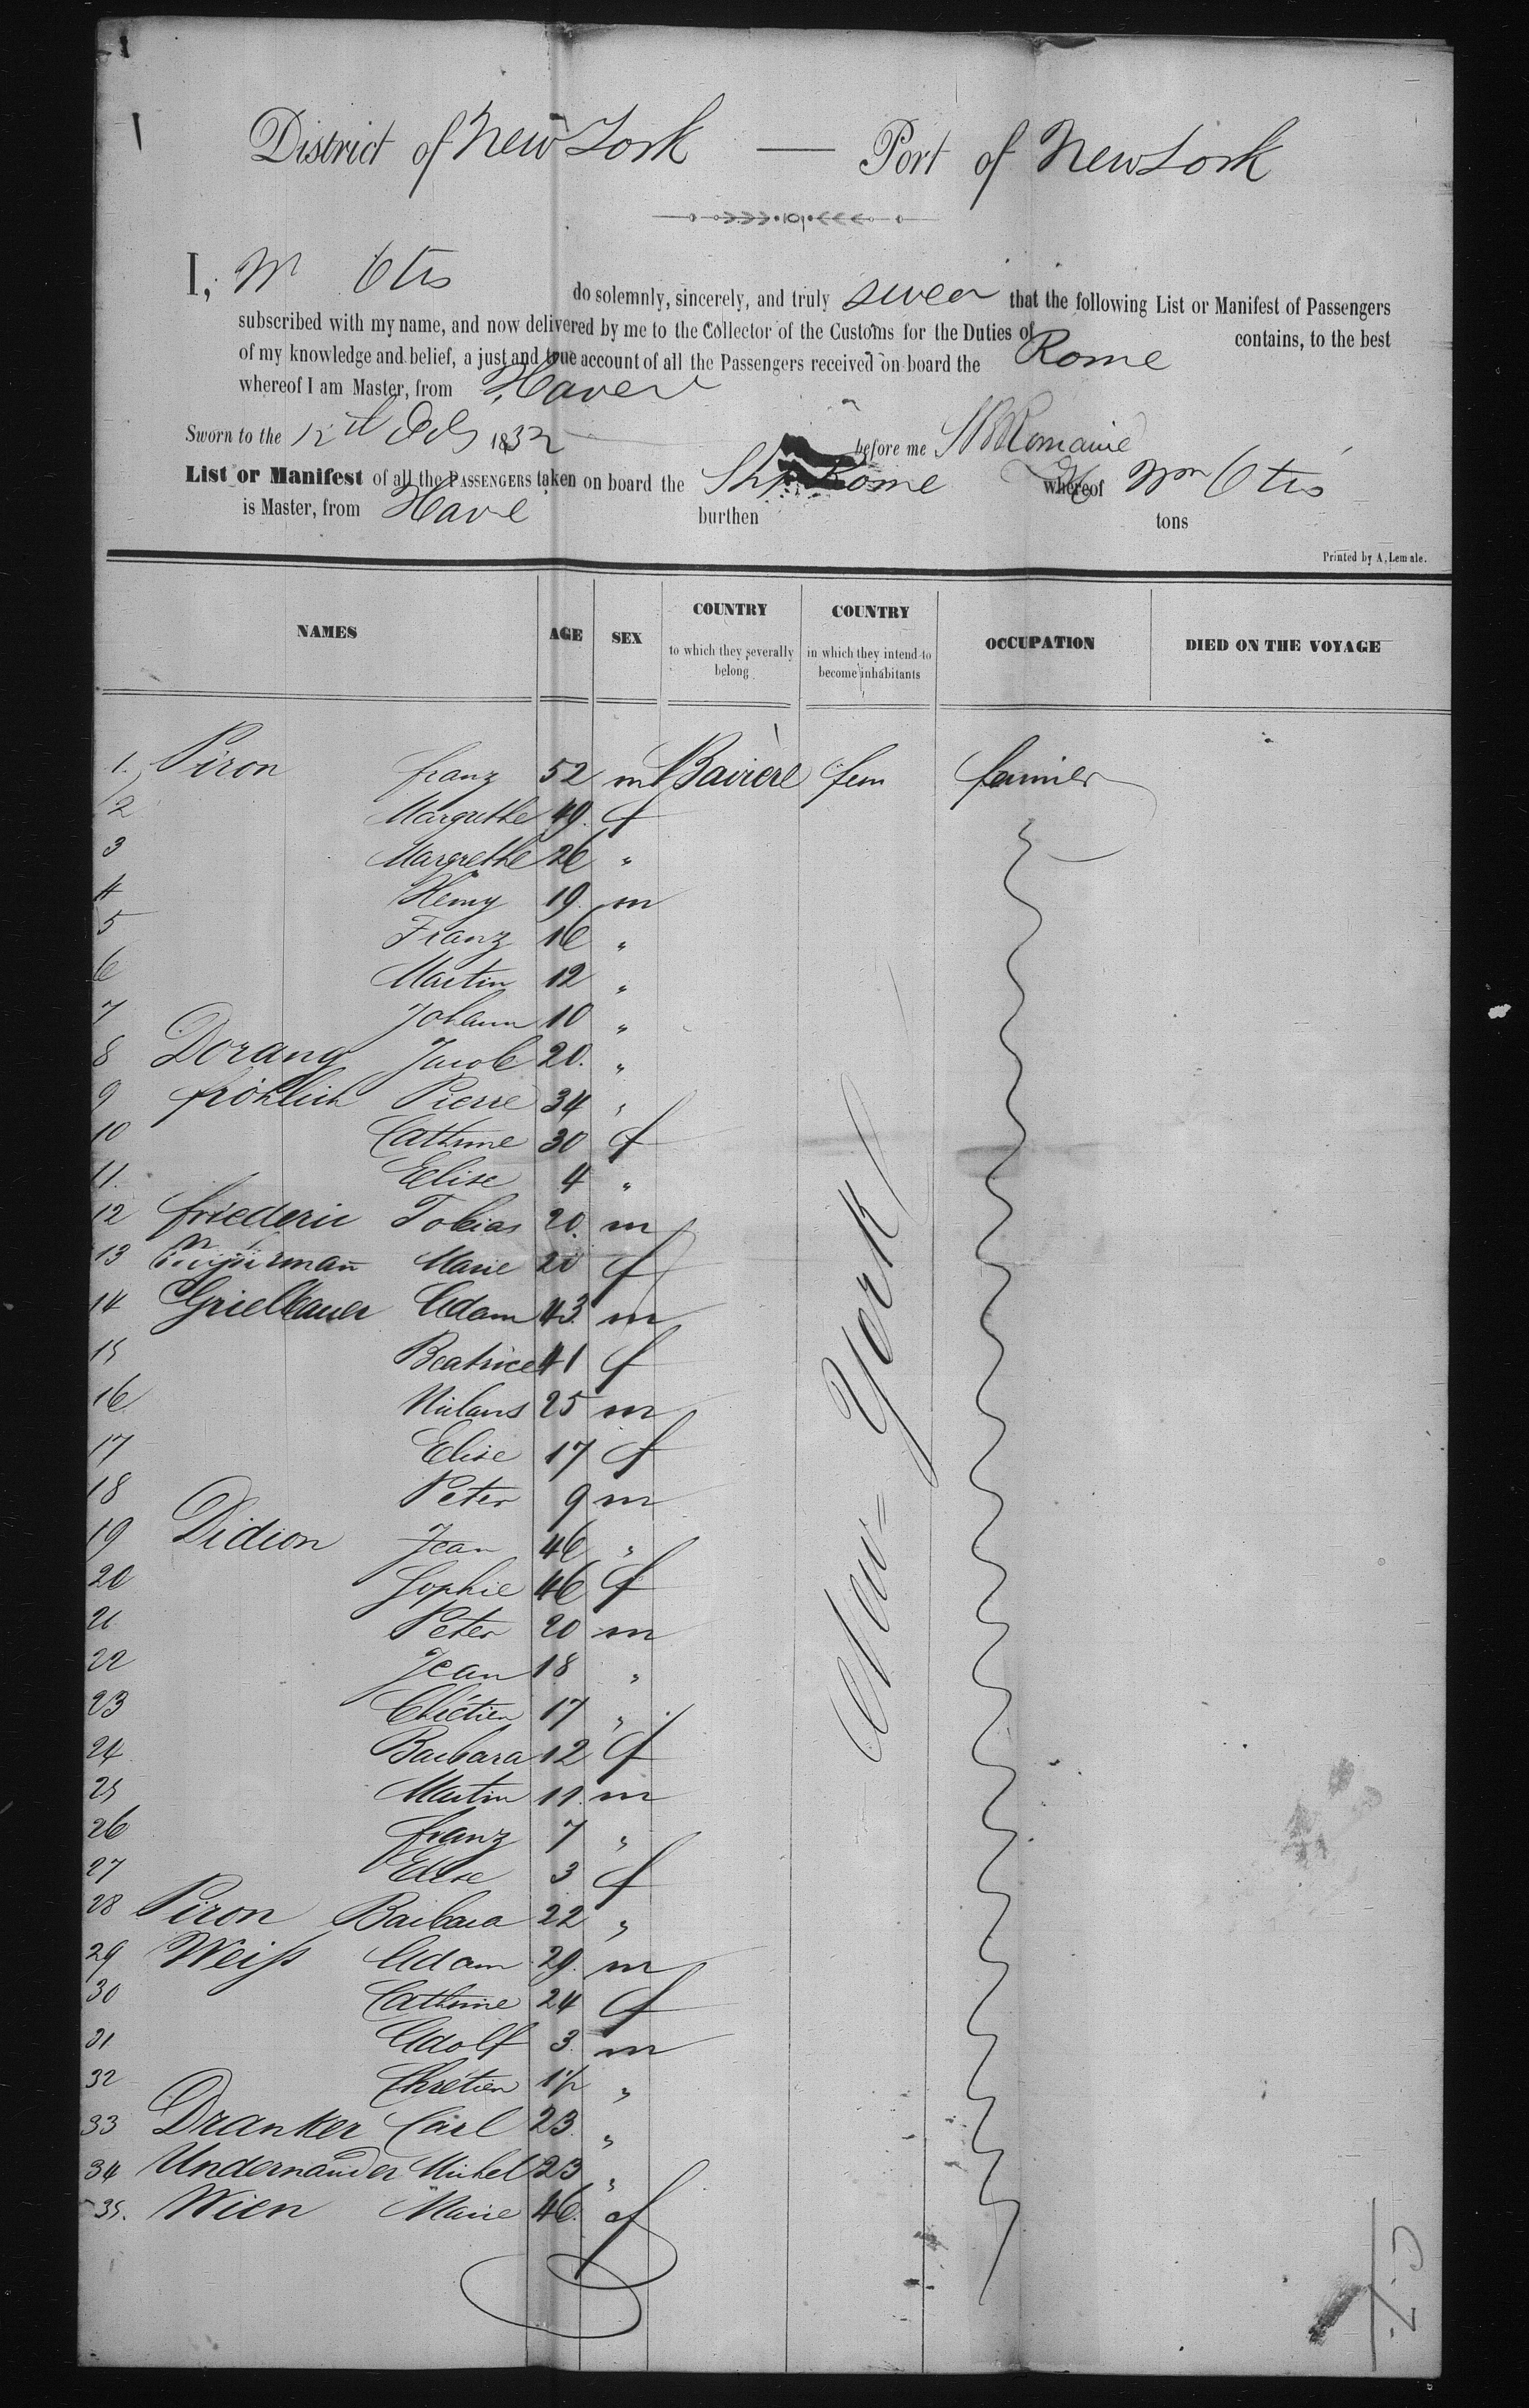 District of New York — Port of New York
I, Wm Otis do solemnly, sincerely, and truly swear that the following List or Manifest of Passengers
subscribed with my name, and now delivered by me to the Collector of the Customs for the Duties of contains, to the best
of my knowledge and belief, a just and true account of all the Passengers received on board the Rome
whereof I am Master, from Haver
Sworn to the 12th 1832 before me Romaine
List or Manifest of all the PASSENGERS taken on board the Ship Rome whereof Wm Otis
is Master, from Havre burthen tons
Printed by A. Lemale.
NAMES AGE SEX COUNTRY to which they severally belong COUNTRY in which they intend to become inhabitants OCCUPATION DIED ON THE VOYAGE
1. Piron franz 52 m Baviere farmer
2 Margrethe 49. f
3 Margrethe 26 "
4 Henry 19. m
5 Franz 16 "
6 Martin 12 "
7 Johann 10 "
8 Dorang Jacob 20. "
9 fröhlich Pierre 34 "
10 Cathrine 30 f
11. Elise 4 "
12 friederic Tobias 20. m
13 Marie 20 f
14 Grielbauer Adam 43. m
15 Beatrice 41 f
16 Niclaus 25 m
17 Elise 17 f
18 Peter 9 m
19 Didion Jean 46 "
20 Sophie 46 f
21 Peter 20 m
22 Jean 18 "
23 Chrétien 17 "
24 Barbara 12 f
25 Martin 11. m
26 franz 7 "
27 Elise 3 f
28 Piron Barbara 22 "
29 Weiss Adam 29. m
30 Cathrine 24 f
31 Adolf 3. m
32 Chrétien 1½ "
33 Dranker Carl 23. "
34 Undernander Michel 23 "
35. Wien Marie 46. f
New=York